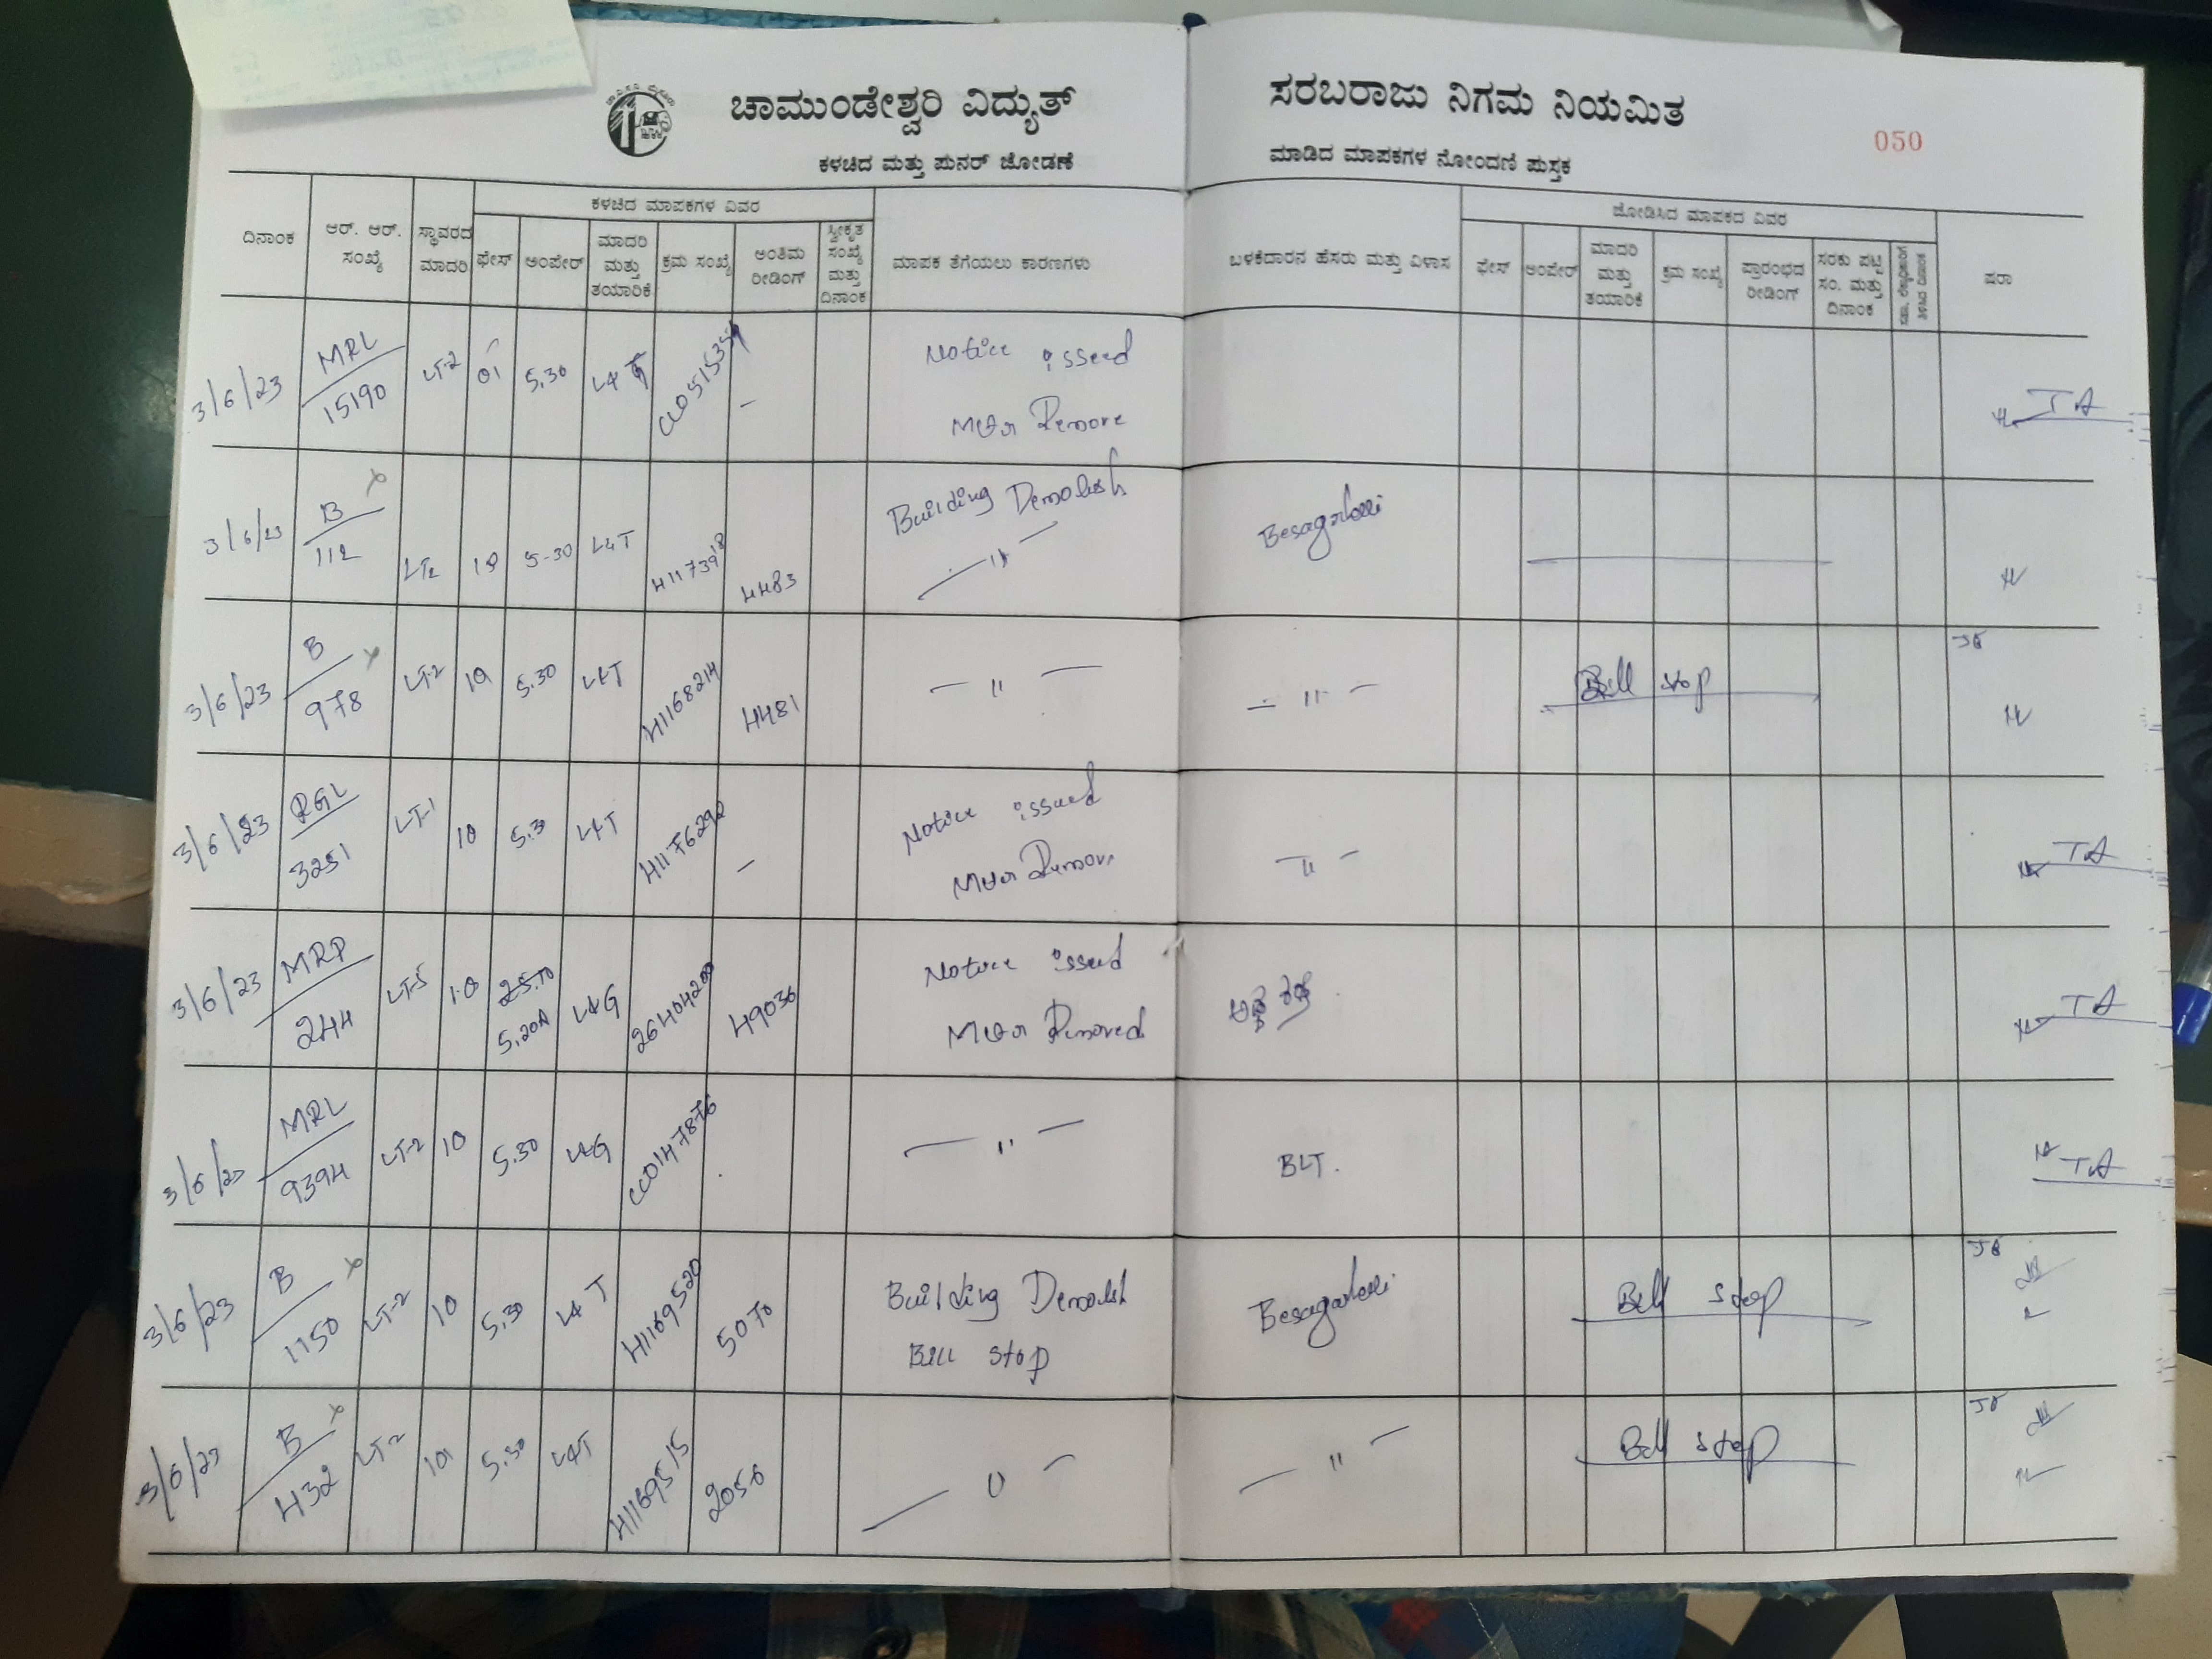 ಚಾಮುಂಡೇಶ್ವರಿ ವಿದ್ಯುತ್ ಸರಬರಾಜು ನಿಗಮ ನಿಯಮಿತ
050
ಕಳಚಿದ ಮತ್ತು ಪುನರ್ ಜೋಡಣೆ ಮಾಡಿದ ಮಾಪಕಗಳ ನೋಂದಣಿ ಪುಸ್ತಕ
ಕಳಚಿದ ಮಾಪಕಗಳ ವಿವರ ಜೋಡಿಸಿದ ಮಾಪಕದ ವಿವರ
ದಿನಾಂಕ ಆರ್. ಆರ್. ಸಂಖ್ಯೆ ಸ್ಥಾವರದ ಮಾದರಿ ಫೇಸ್ ಅಂಪೇರ್ ಮಾದರಿ ಮತ್ತು ತಯಾರಿಕೆ ಕ್ರಮ ಸಂಖ್ಯೆ ಅಂತಿಮ ರೀಡಿಂಗ್ ಸ್ವೀಕೃತ ಸಂಖ್ಯೆ ಮತ್ತು ದಿನಾಂಕ ಮಾಪಕ ತೆಗೆಯಲು ಕಾರಣಗಳು ಬಳಕೆದಾರನ ಹೆಸರು ಮತ್ತು ವಿಳಾಸ ಫೇಸ್ ಅಂಪೇರ್ ಮಾದರಿ ಮತ್ತು ತಯಾರಿಕೆ ಕ್ರಮ ಸಂಖ್ಯೆ ಪ್ರಾರಂಭದ ರೀಡಿಂಗ್ ಸರಕು ಪಟ್ಟಿ ಸಂ. ಮತ್ತು ದಿನಾಂಕ ಷರಾ
3/6/23 MRL 15190 LT-2 01 5.30 L&T — Notice issued Meter Remove TA
3/6/23 B 112 LT2 10 5-30 L&T 4483 Building Demolish — " — Besagarhalli
3/6/23 B 978 LT-2 10 5.30 L&T 41168214 4481 — " — — " — Bill stop
3/6/23 RGL 3251 LT-1 10 5.30 L&T 41176292 — Notice issued Meter Remove — " — TA
3/6/23 MRP 244 LT-5 10 5.20A L&G 26404200 49036 Notice issued Meter Removed TA
3/6/23 MRL 9394 LT-2 10 5.30 L&G CC0147876 — " — BLT. TA
3/6/23 B 1150 LT-2 10 5.30 L&T 41169520 5070 Building Demolish Bill stop Besagarhalli Bill stop
3/6/23 B 432 LT-2 10 5.30 L&T 41169515 2056 — " — — " — Bill stop